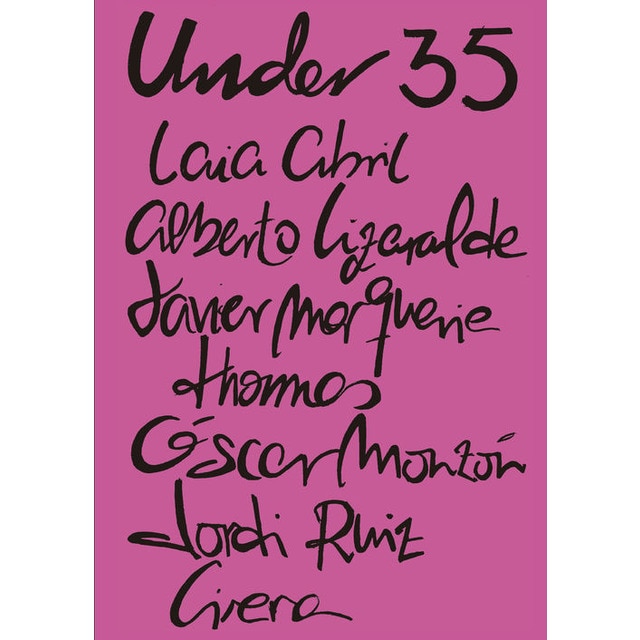 Under 35
Laia Abril
Alberto Lizaralde
Javier Marquerie
Thomas
Óscar Monzón
Jordi Ruiz
Cirera